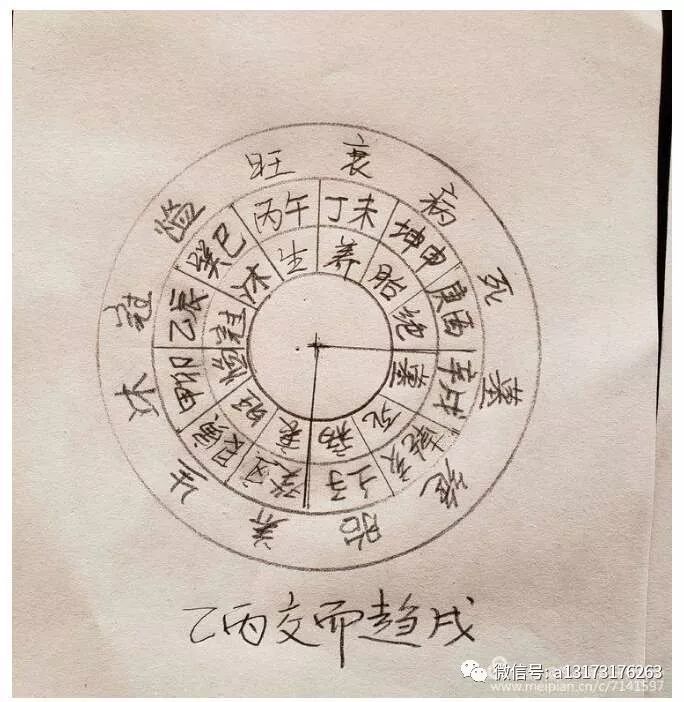 旺 衰 病 死 墓 绝 胎 养 生 沐 冠
丙午 丁未 坤申 庚酉 辛戌 乾亥 壬子 癸丑 艮寅 甲卯 乙辰 巽巳
生 养 胎 绝 墓 死 病 衰 旺 冠 沐
乙丙交而趋戌
微信号: a13173176263
www.meipian.cn/c/7141597